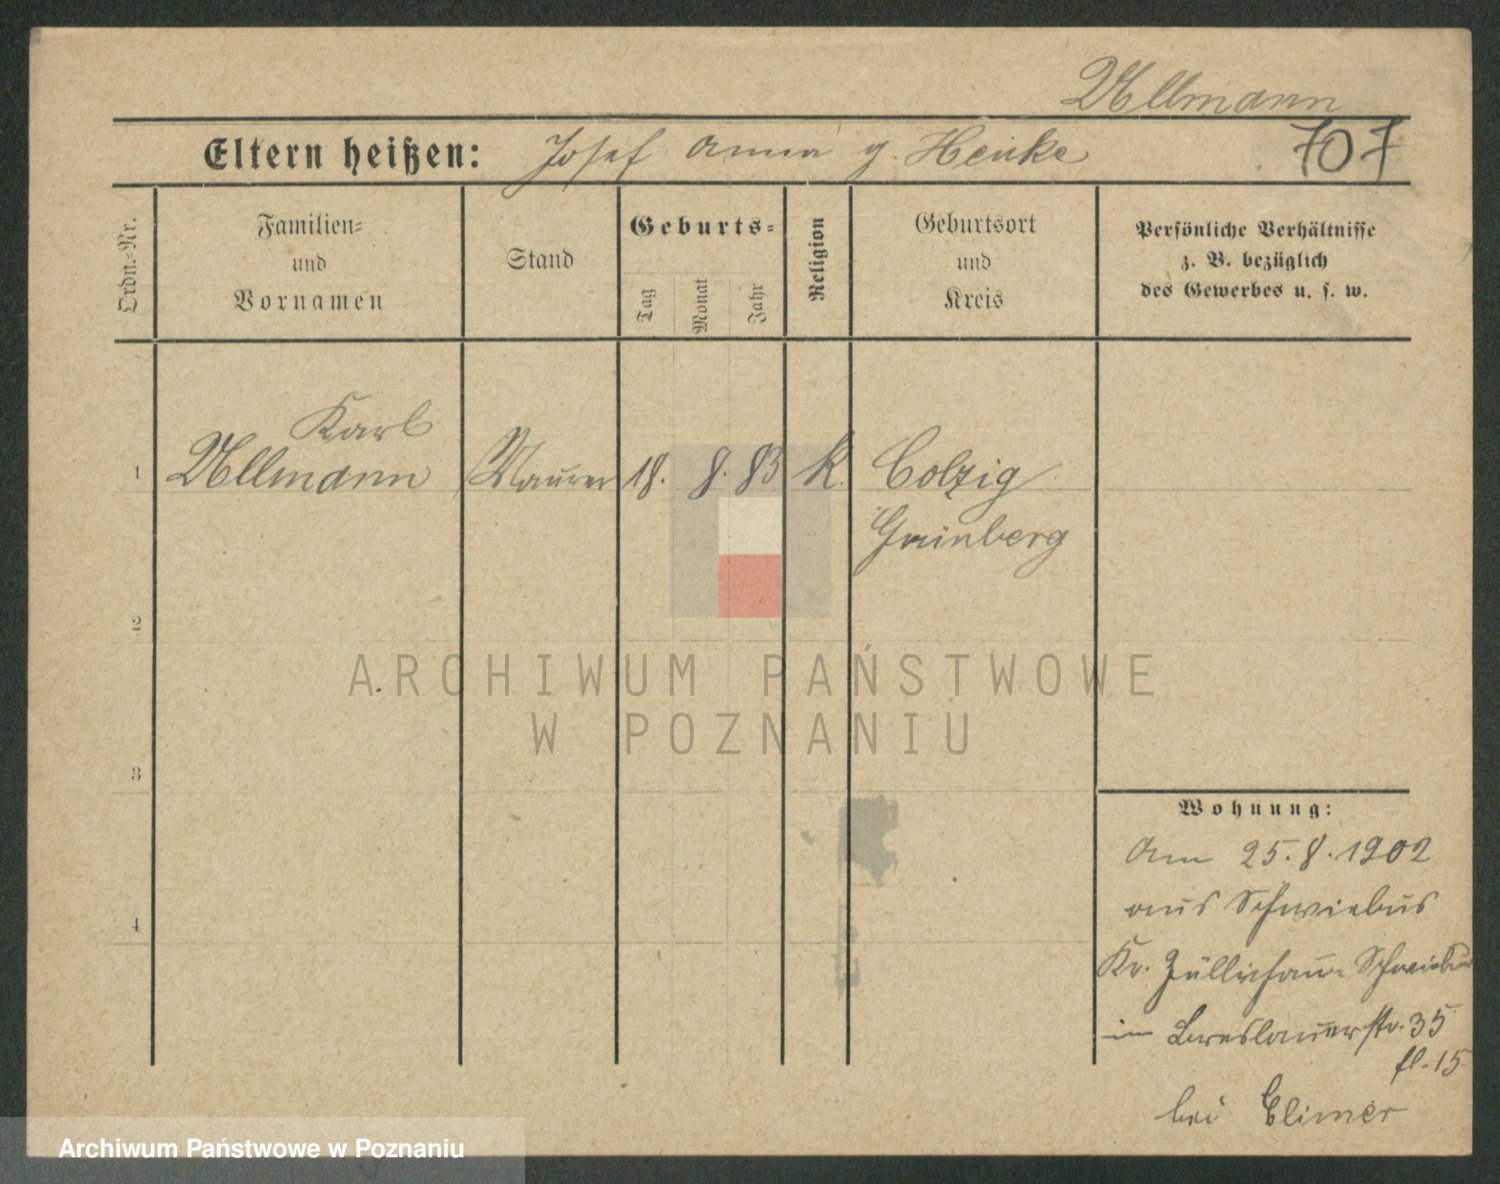 Ullmann
Eltern heißen: Josef Anna g. Henke 707
Ordn.-Nr.
Familien-
und
Vornamen
Stand
Geburts-
Tag
Monat
Jahr
Religion
Geburtsort
und
Kreis
Persönliche Verhältnisse
z. B. bezüglich
des Gewerbes u. s. w.
Karl
1 Ullmann Maurer 18. 8. 83 k. Colzig
Grünberg
2
ARCHIWUM PAŃSTWOWE
W POZNANIU
3
Wohnung:
Am 25.8.1902
aus Schwiebus
4
Kr. Züllichau-Schwiebus
in Breslauerstr. 35
fl. 15
bei Elimer
Archiwum Państwowe w Poznaniu